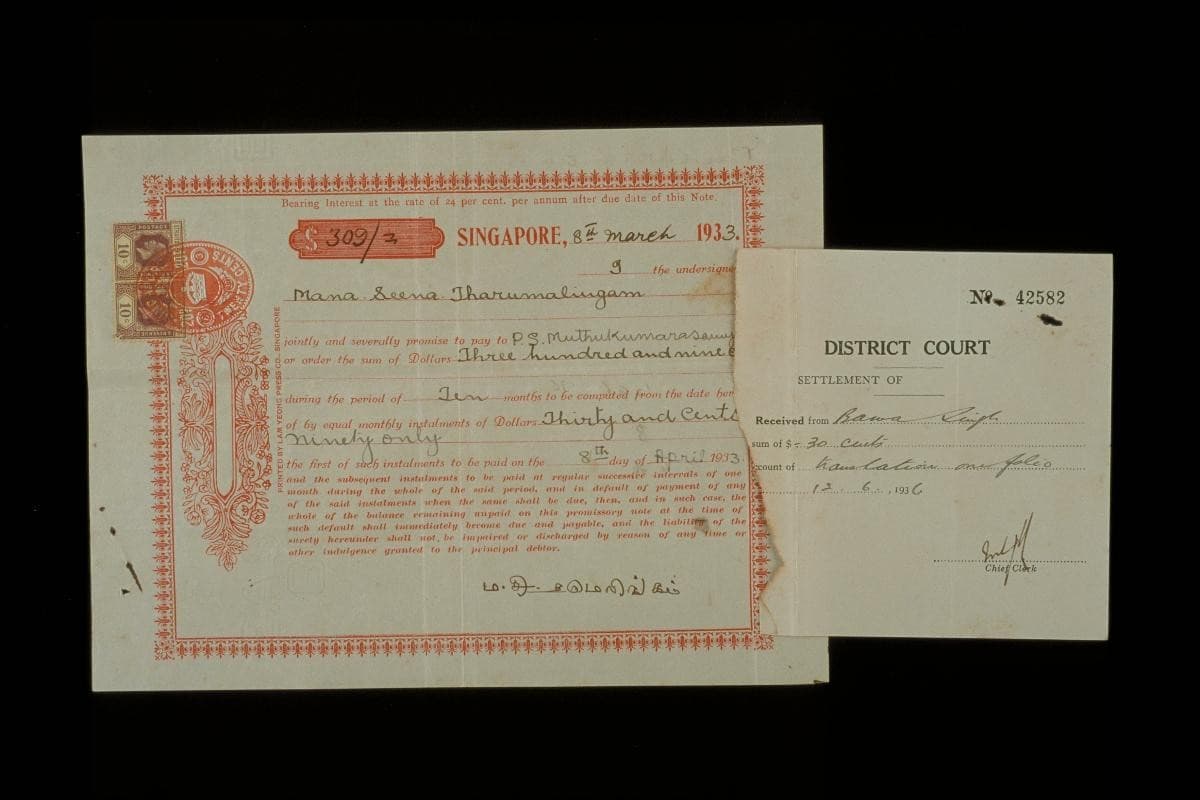 Bearing Interest at the rate of 24 per cent. per annum after due date of this Note.
$ 309/=
SINGAPORE, 8th March 1933.
I the undersigne
Mana Seena Tharumalingam
jointly and severally promise to pay to P.S. Muthukumarasamy
or order the sum of Dollars Three hundred and nine
during the period of Ten months to be computed from the date her
of by equal monthly instalments of Dollars Thirty and Cents
Ninety only
the first of such instalments to be paid on the 8th day of April 1933
and the subsequent instalments to be paid at regular successive intervals of one
month during the whole of the said period, and in default of payment of any
of the said instalments when the same shall be due, then, and in such case, the
whole of the balance remaining unpaid on this promissory note at the time of
such default shall immediately become due and payable, and the liability of the
surety hereunder shall not be impaired or discharged by reason of any time or
other indulgence granted to the principal debtor.
PRINTED BY LAM YEONG PRESS CO. SINGAPORE
POSTAGE
10 C
10 C
No. 42582
DISTRICT COURT
SETTLEMENT OF
Received from Bawa Singh
sum of $ - 30 cents
ccount of translation one folio
12 . 6 . , 1936
Chief Clerk